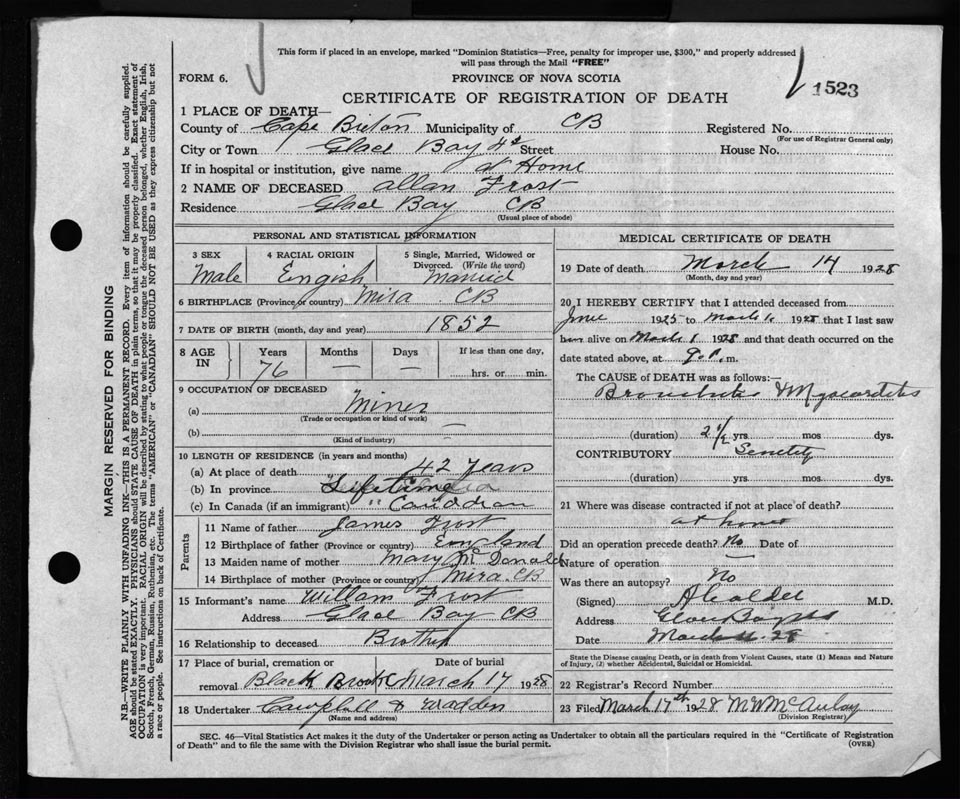 This form if placed in an envelope, marked "Dominion Statistics—Free, penalty for improper use, $300," and properly addressed
will pass through the Mail "FREE"
FORM 6.
PROVINCE OF NOVA SCOTIA
1523
CERTIFICATE OF REGISTRATION OF DEATH
1 PLACE OF DEATH—
County of Cape Breton Municipality of CB Registered No.
(For use of Registrar General only)
City or Town Glace Bay 4st Street House No.
If in hospital or institution, give name at Home
2 NAME OF DECEASED Allan Frost
Residence Glace Bay CB
(Usual place of abode)
PERSONAL AND STATISTICAL INFORMATION
3 SEX 4 RACIAL ORIGIN 5 Single, Married, Widowed or
Divorced. (Write the word)
Male Engish Married
6 BIRTHPLACE (Province or country) Mira CB
7 DATE OF BIRTH (month, day and year) 1852
8 AGE IN Years Months Days If less than one day,
76 — — hrs. or min.
9 OCCUPATION OF DECEASED
(a) Miner
(Trade or occupation or kind of work)
(b) —
(Kind of industry)
10 LENGTH OF RESIDENCE (in years and months)
(a) At place of death 42 years
(b) In province Lifetime
(c) In Canada (if an immigrant) " Canadian
Parents
11 Name of father James Frost
12 Birthplace of father (Province or country) England
13 Maiden name of mother Mary McDonald
14 Birthplace of mother (Province or country) Mira. CB
15 Informant's name William Frost
Address Glace Bay CB
16 Relationship to deceased Brother
17 Place of burial, cremation or Date of burial
removal Black Brook March 17 1928
18 Undertaker Campbell & Madden
(Name and address)
MEDICAL CERTIFICATE OF DEATH
19 Date of death March 14 1928
(Month, day and year)
20 I HEREBY CERTIFY that I attended deceased from
June 1925 to March 1928 that I last saw
him alive on March 1 1928 and that death occurred on the
date stated above, at 9 P. m.
The CAUSE of DEATH was as follows:—
Bronchitis & Myocarditis
(duration) 2 1/2 yrs. mos. dys.
CONTRIBUTORY Senility
(duration) yrs. mos. dys.
21 Where was disease contracted if not at place of death?
at home
Did an operation precede death? No Date of
Nature of operation
Was there an autopsy? No
(Signed) M.D.
Address
Date March 28
State the Disease causing Death, or in death from Violent Causes, state (1) Means and Nature
of Injury, (2) whether Accidental, Suicidal or Homicidal.
22 Registrar's Record Number
23 Filed March 17th 1928 M W McAulay
(Division Registrar)
SEC. 46—Vital Statistics Act makes it the duty of the Undertaker or person acting as Undertaker to obtain all the particulars required in the "Certificate of Registration
of Death" and to file the same with the Division Registrar who shall issue the burial permit.
(OVER)
MARGIN RESERVED FOR BINDING
N.B.—WRITE PLAINLY WITH UNFADING INK—THIS IS A PERMANENT RECORD. Every item of information should be carefully supplied.
AGE should be stated EXACTLY. PHYSICIANS should STATE CAUSE OF DEATH in plain terms, so that it may be properly classified. Exact statement of
OCCUPATION is very important. RACIAL ORIGIN will be described by stating to what people or tongue the deceased person belonged, whether English, Irish,
Scotch, French, German, Russian, Ruthenian, etc. The terms "AMERICAN" or "CANADIAN" SHOULD NOT BE USED as they express citizenship but not
a race or people. See instructions on back of Certificate.